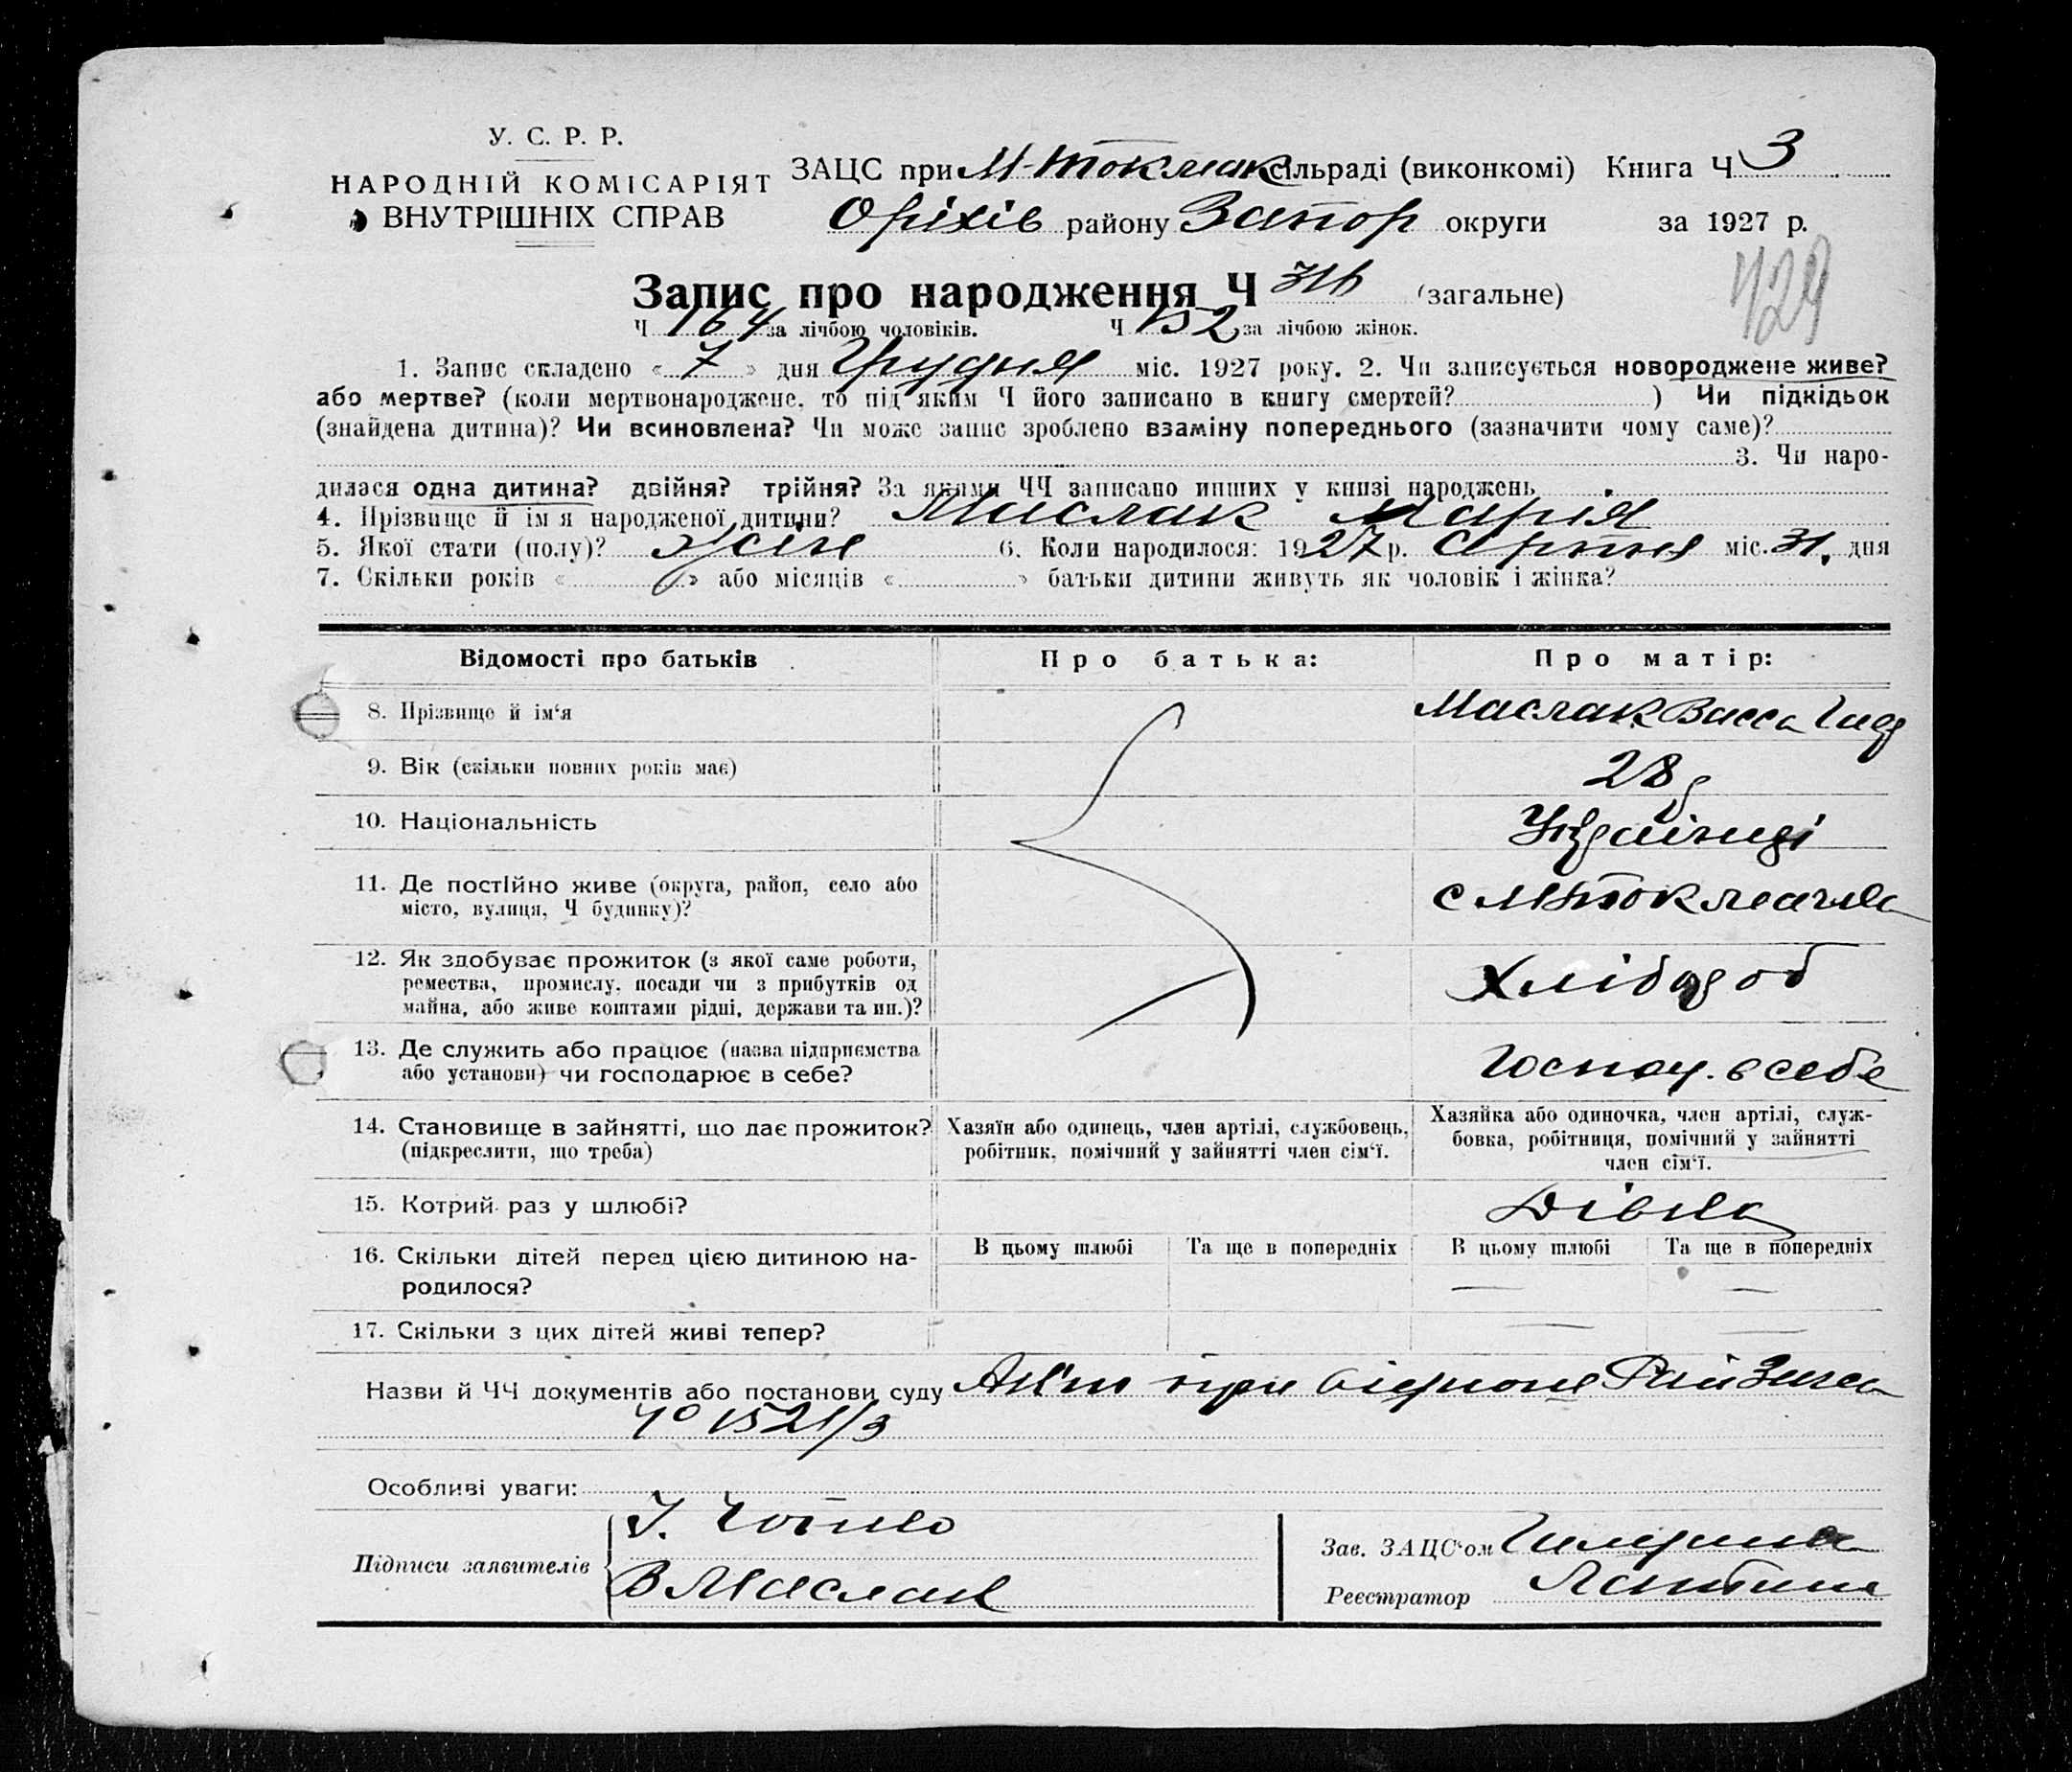 У. С. Р. Р.
НАРОДНІЙ КОМІСАРІЯТ
ВНУТРІШНІХ СПРАВ
ЗАЦС при М-Токмак сільраді (виконкомі) Книга Ч 3
Оріхів району Запор округи за 1927 р.
429
Запис про народження Ч 316 (загальне)
Ч 164 за лічбою чоловіків. Ч 152 за лічбою жінок.
1. Запис складено « 7 » дня Грудня міс. 1927 року. 2. Чи записується новороджене живе?
або мертве? (коли мертвонароджене, то під яким Ч його записано в книгу смертей? ) Чи підкідьок
(знайдена дитина)? Чи всиновлена? Чи може запис зроблено взаміну попереднього (зазначити чому саме)?
3. Чи наро-
дилася одна дитина? двійня? трійня? За якими ЧЧ записано инших у книзі народжень
4. Прізвище й ім я народженої дитини? Маслак Марія
5. Якої стати (полу)? жін 6. Коли народилося: 1927 р. Серпня міс. 31. дня
7. Скільки років « » або місяців « » батьки дитини живуть як чоловік і жінка?
Відомості про батьків Про батька: Про матір:
8. Прізвище й ім‘я Маслак Васса
9. Вік (скільки повних років має) 28 р
10. Національність
11. Де постійно живе (округа, район, село або
місто, вулиця, Ч будинку)? с М-Токмачка
12. Як здобуває прожиток (з якої саме роботи,
ремества, промислу, посади чи з прибутків од
майна, або живе коштами рідні, держави та ин.)? Хлібороб
13. Де служить або працює (назва підприємства
або установи) чи господарює в себе? Господ. в себе
14. Становище в зайнятті, що дає прожиток?
(підкреслити, що треба)
Хазяїн або одинець, член артілі, службовець,
робітник, помічний у зайнятті член сім‘ї.
Хазяйка або одиночка, член артілі, служ-
бовка, робітниця, помічний у зайнятті
член сім‘ї.
15. Котрий раз у шлюбі? Дівка
16. Скільки дітей перед цією дитиною на-
родилося?
В цьому шлюбі Та ще в попередніх В цьому шлюбі Та ще в попередніх
— —
17. Скільки з цих дітей живі тепер? — —
Назви й ЧЧ документів або постанови суду при
1521/3
Особливі уваги:
Підписи заявителів
В Маслак
Зав. ЗАЦС‘ом
Реєстратор